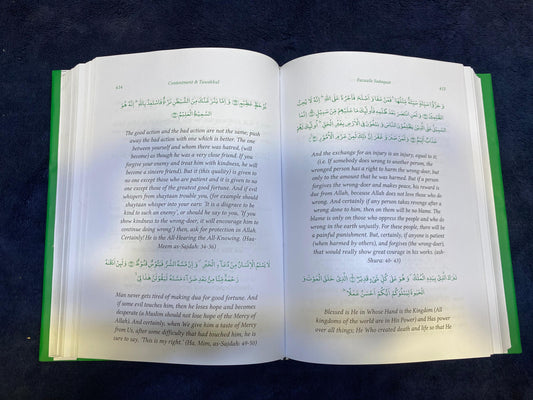 Contentment & Tawakkul
ذُو حَظٍّ عَظِيمٍ وَإِمَّا يَنْزَغَنَّكَ مِنَ الشَّيْطٰنِ نَزْغٌ فَاسْتَعِذْ بِاللّٰهِ ؕ اِنَّهٗ هُوَ
السَّمِيْعُ الْعَلِيْمُ
The good action and the bad action are not the same, push
away the bad action with one which is better. The one
between yourself and whom there was hatred, (will
become) as though he was a very close friend. (If you
forgive your enemy and treat him with kindness, he will
become a sincere friend). But it (this quality) is given to
no one except those who are patient and it is given to no
one except those of the greatest good fortune. And if evil
whispers from shaytaan trouble you, (for example should
shaytaan whisper into your ears: 'It is a disgrace to be
kind to such an enemy', or should he say to you, 'If you
show kindness to the wrong-doer, it will encourage him to
continue doing wrong') then, ask for protection in Allah.
Certainly! He is the All-Hearing the All-Knowing. (Haa-
Meem as-Sajdah: 34-36)
لَا يَسْـَٔمُ الْاِنْسَانُ مِنْ دُعَآءِ الْخَيْرِ وَاِنْ مَّسَّهُ الشَّرُّ فَيَـُٔوْسٌ قَنُوْطٌ وَلَئِنْ اَذَقْنٰهُ
رَحْمَةً مِّنَّا مِنْۢ بَعْدِ ضَرَّآءَ مَسَّتْهُ لَيَقُوْلَنَّ هٰذَا لِيْ
Man never gets tired of making dua for good fortune. And
if some evil touches him, then he loses hope and becomes
desperate (a Muslim should not lose hope of the Mercy of
Allah). And certainly, when We give him a taste of Mercy
from Us, after some difficulty that had touched him, he is
sure to say. 'This is my right.' (Ha, Mim, as-Sajdah: 49-50)
Fazaaile Sadaqaat
وَ جَزٰٓؤُا سَيِّئَةٍ سَيِّئَةٌ مِّثْلُهَا ۚ فَمَنْ عَفَا وَ اَصْلَحَ فَاَجْرُهٗ عَلَى اللّٰهِ ؕ اِنَّهٗ لَا يُحِبُّ
And the exchange for an injury is an injury, equal to it;
(i.e. If somebody does wrong to another person, the
wronged person has a right to harm the wrong-doer, but
only to the amount that he was harmed. But if a person
forgives the wrong-doer and makes peace, his reward is
due from Allah, because Allah does not love those who do
wrong. And certainly if any person takes revenge after a
wrong done to him, then on them will be no blame. The
blame is only on those who oppress the people and who do
wrong in the earth unjustly. For these people, there will be
a painful punishment. But, certainly, if anyone is patient
(when harmed by others), and forgives (the wrong-doer),
that would really show great courage in his works (ash-
Shura: 40- 43)
تَبٰرَكَ الَّذِيْ بِيَدِهِ الْمُلْكُ وَهُوَ عَلٰى كُلِّ شَيْءٍ قَدِيْرٌ الَّذِيْ خَلَقَ الْمَوْتَ وَ
الْحَيٰوةَ لِيَبْلُوَكُمْ اَيُّكُمْ اَحْسَنُ عَمَلًا
Blessed is He in Whose Hand is the Kingdom (All
kingdoms of the world are in His Power) and Has power
over all things; He Who created death and life so that He